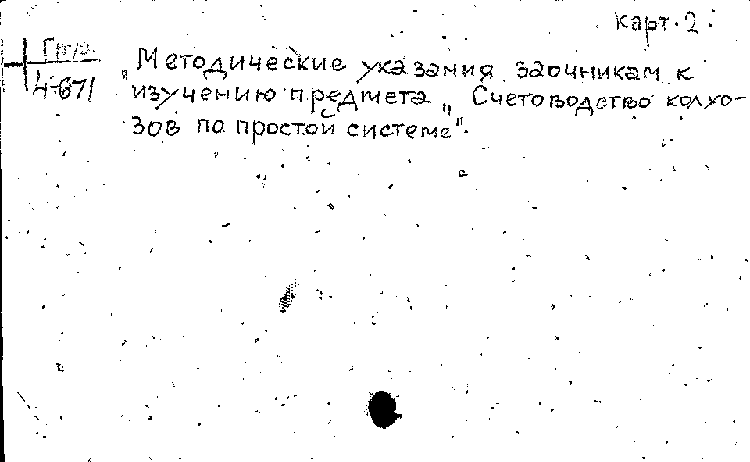 карт. 2.
4-671
„Методические указания заочникам к
изучению предмета „Счетоводство колхо-
зов по простой системе".